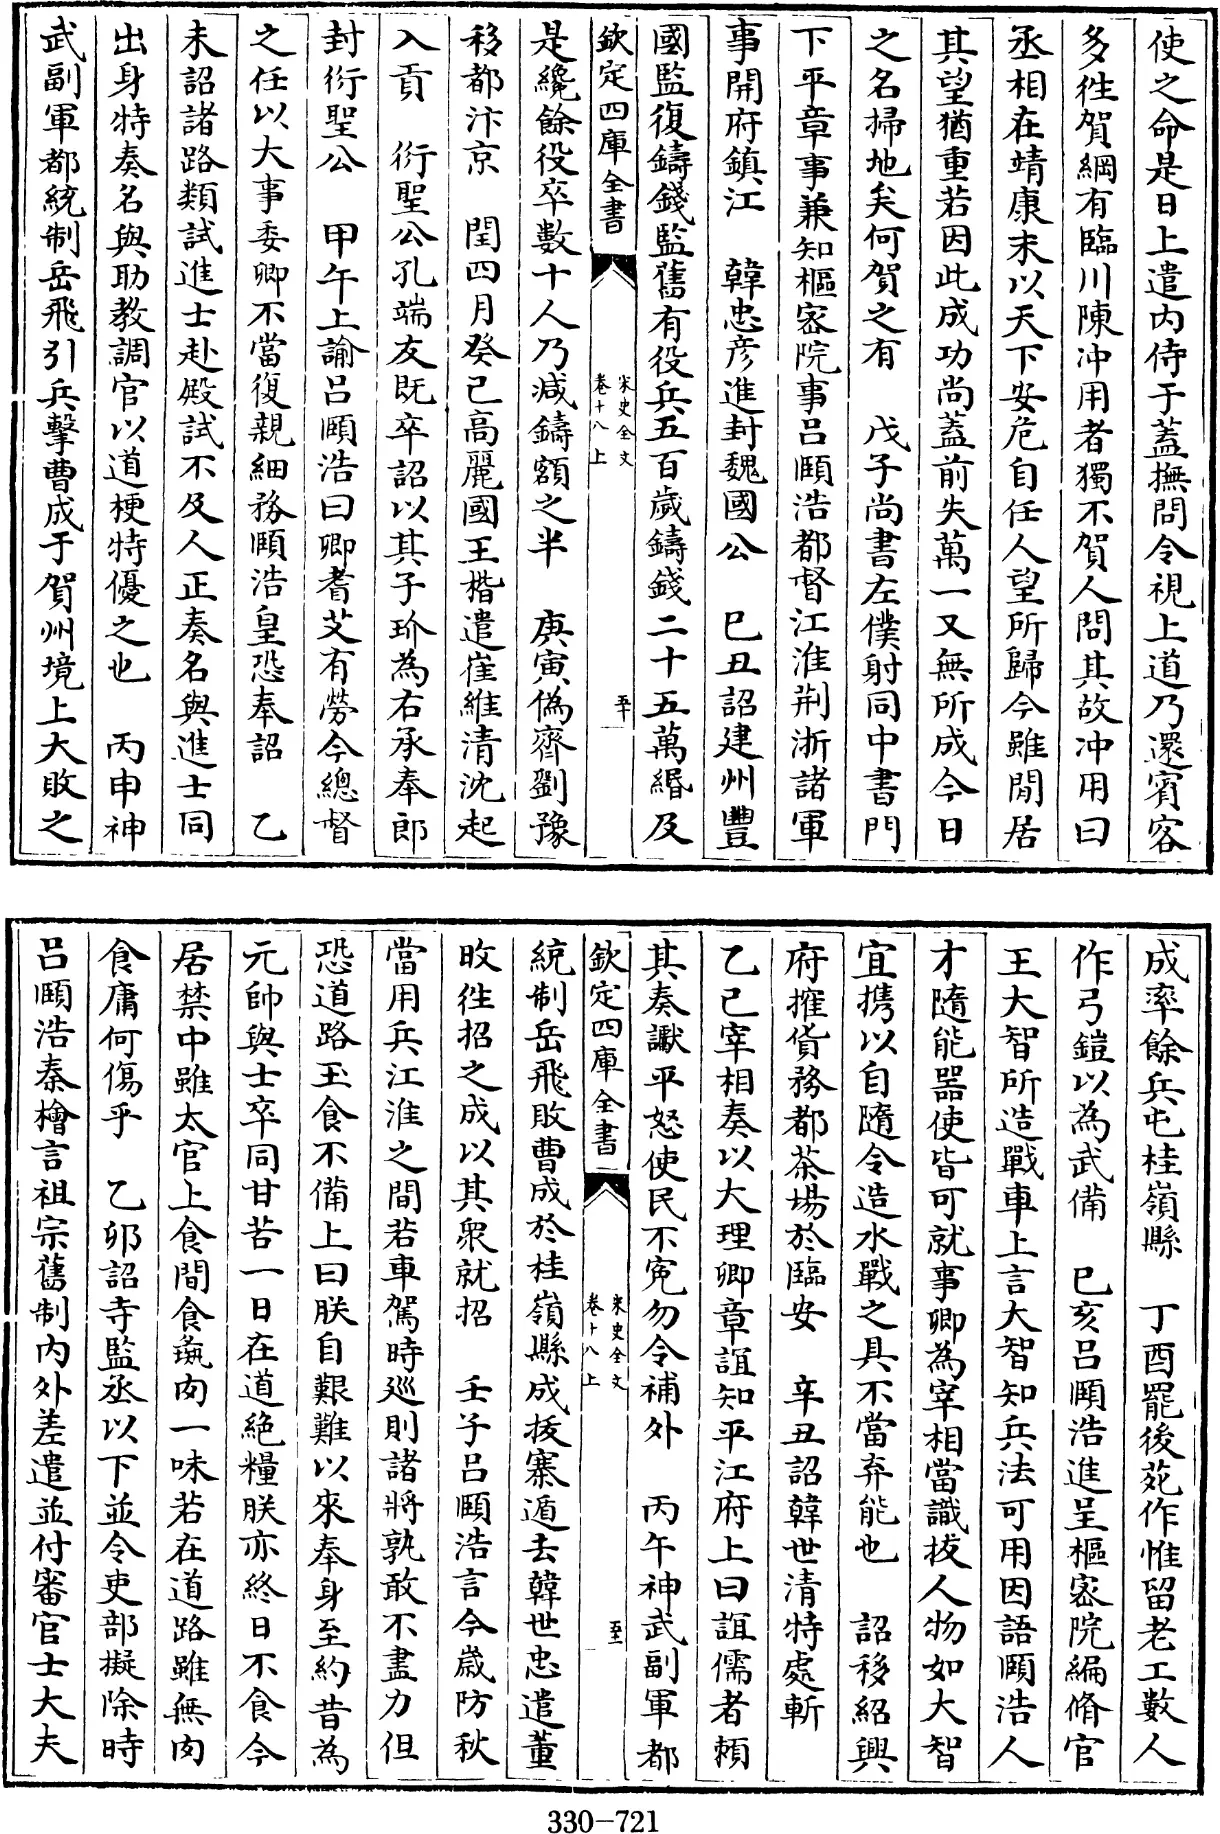 使之命是日上遣内侍于蓋撫問令視上道乃還賓客
多徃賀綱有臨川陳冲用者獨不賀人問其故冲用曰
丞相在靖康末以天下安危自任人望所歸今雖閒居
其望猶重若因此成功尚蓋前失萬一又無所成今日
之名掃地矣何賀之有　戊子尚書左僕射同中書門
下平章事兼知樞宻院事吕頤浩都督江淮荆浙諸軍
事開府鎮江　韓忠彦進封魏國公　巳丑詔建州豐
國監復鑄錢監舊有役兵五百歲鑄錢二十五萬緡及
欽定四庫全書
宋史全文
卷十八上
五十
是纔餘役卒數十人乃減鑄額之半　庚寅僞齊劉豫
移都汴京　閏四月癸巳高麗國王楷遣崔維清沈起
入貢　衍聖公孔端友既卒詔以其子玠為右承奉郎
封衍聖公　甲午上諭吕頤浩曰卿耆艾有勞今總督
之任以大事委卿不當復親細務頤浩皇恐奉詔　乙
未詔諸路類試進士赴殿試不及人正奏名與進士同
出身特奏名與助教調官以道梗特優之也　丙申神
武副軍都統制岳飛引兵擊曹成于賀州境上大敗之
成率餘兵屯桂嶺縣　丁酉罷後苑作惟留老工數人
作弓鎧以為武備　巳亥吕頤浩進呈樞宻院編脩官
王大智所造戰車上言大智知兵法可用因語頤浩人
才隨能器使皆可就事卿為宰相當識拔人物如大智
宜携以自隨令造水戰之具不當弃能也　詔移紹興
府搉貨務都茶塲於臨安　辛丑詔韓世清特處斬
乙巳宰相奏以大理卿章誼知平江府上曰誼儒者頼
其奏讞平恕使民不寃勿令補外　丙午神武副軍都
欽定四庫全書
宋史全文
卷十八上
至一
統制岳飛敗曹成於桂嶺縣成拔寨遁去韓世忠遣董
旼徃招之成以其衆就招　壬子吕頤浩言今歲防秋
當用兵江淮之間若車駕時廵則諸將孰敢不盡力但
恐道路玉食不備上曰朕自艱難以來奉身至約昔為
元帥與士卒同甘苦一日在道絶糧朕亦終日不食今
居禁中雖太官上食間食䴥肉一味若在道路雖無肉
食庸何傷乎　乙卯詔寺監丞以下並令吏部擬除時
吕頤浩秦檜言祖宗舊制内外差遣並付審官士大夫
330-721